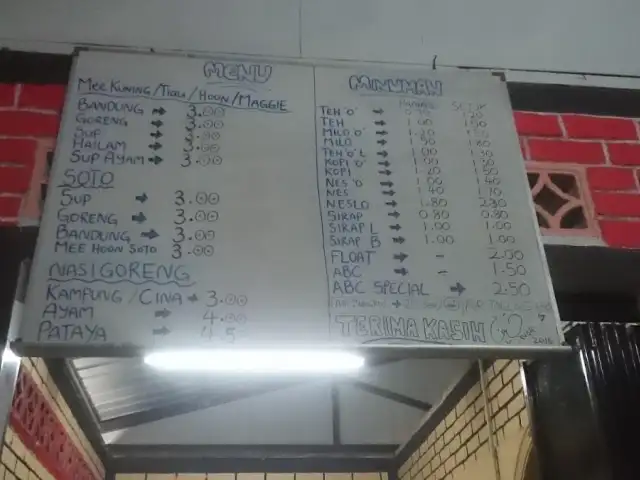 MENU
MEE KUNING/TIAU/HOON/MAGGIE
BANDUNG → 3.00
GORENG → 3.00
SUP → 3.00
HAILAM → 3.00
SUP AYAM → 3.00
SOTO
SUP → 3.00
GORENG → 3.00
BANDUNG → 3.00
MEE HOON SOTO 3.00
NASI GORENG
KAMPUNG/CINA → 3.00
AYAM → 4.00
PATAYA → 4.5
MINUMAN
PANAS SEJUK
TEH 'O' →
TEH → 1.00
MILO 'O' → 1.20
MILO → 1.50
TEH 'O' L → 1.00 1.30
KOPI 'O' → 1.00 1.30
KOPI → 1.20 1.50
NES 'O' → 1.00 1.40
NES → 1.40
NESLO → 1.80 2.30
SIRAP → 0.80 0.80
SIRAP L → 1.00 1.00
SIRAP B → 1.00 1.00
FLOAT → - 2.00
ABC → - 1.50
ABC SPECIAL → 2.50
TERIMA KASIH
2018